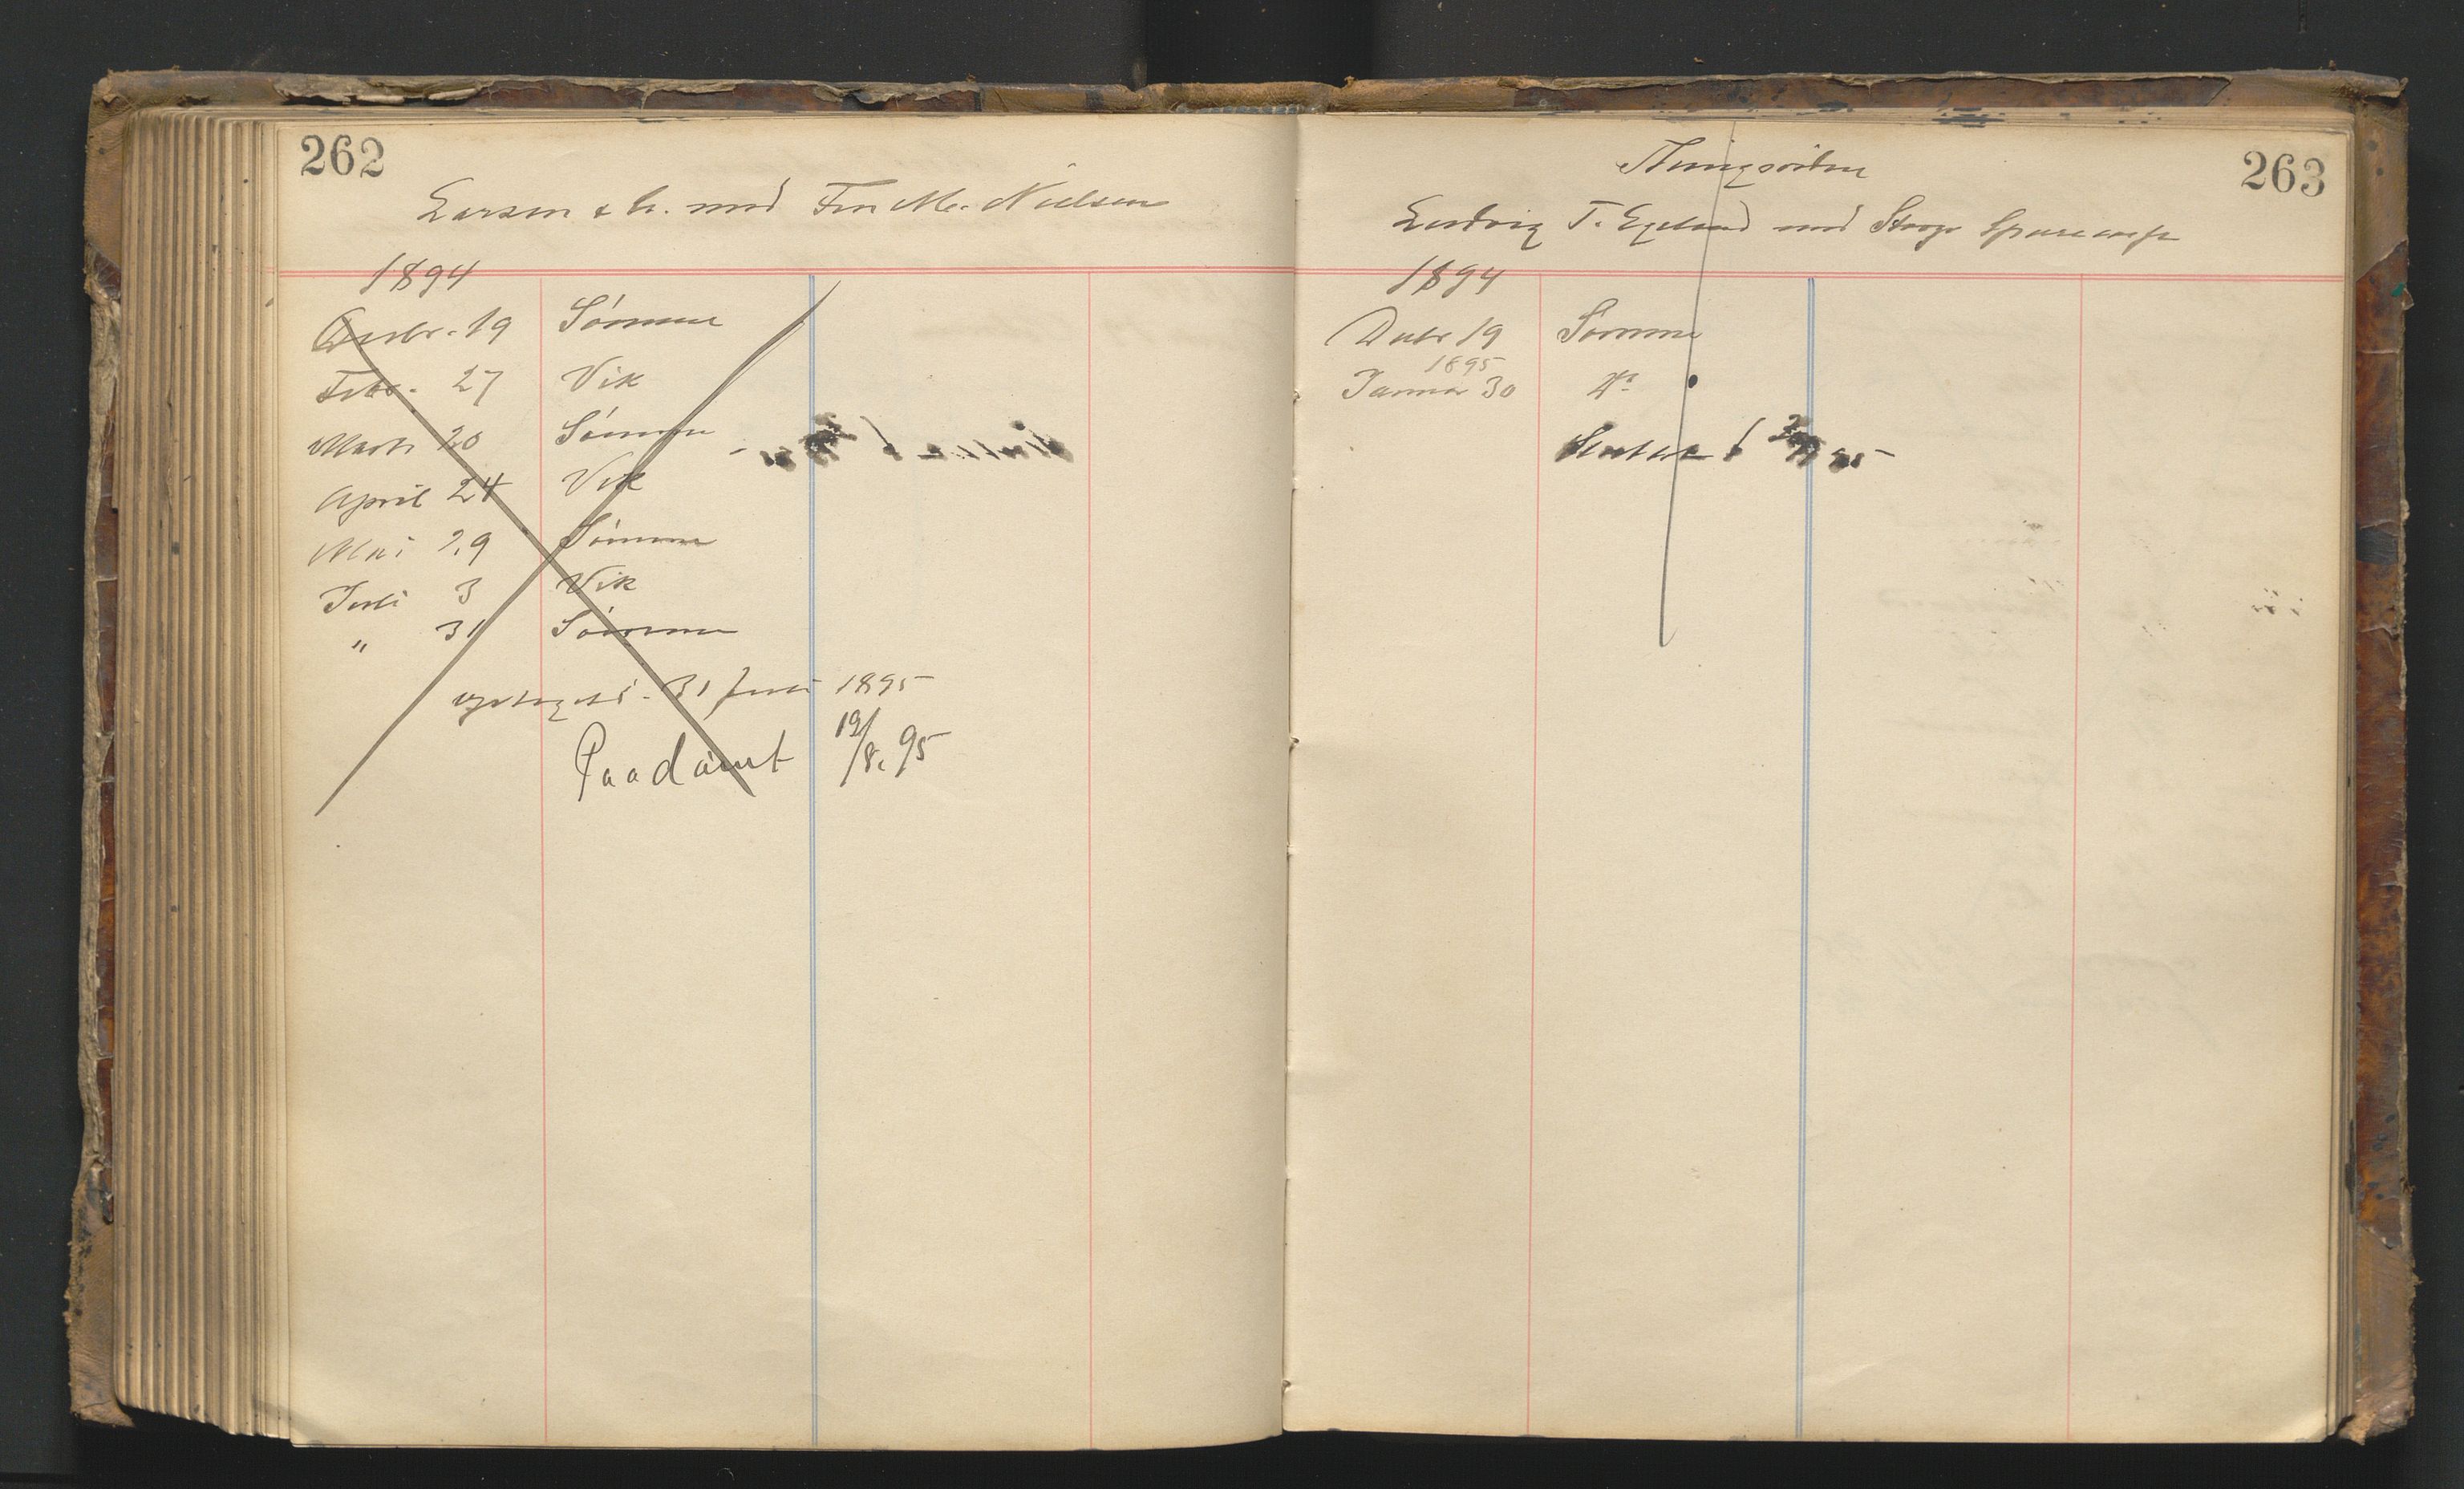 262
Larsen & Co. mod Fru M. Nielsen
1894
Decbr. 19 Sømme
Febr. 27 Vik
Marts 20 Sømme
April 24 Vik
Mai 29 Sømme
Juli 3 Vik
" 31 Sømme
optaget 31 Juli 1895
Paadømt 19/8. 95
263
Thingsvidne
Ludvig T. Egeland mod Stavgr Sparecasse
1894
Decbr 19 Sømme
1895
Januar 30 Do
Sluttet 95